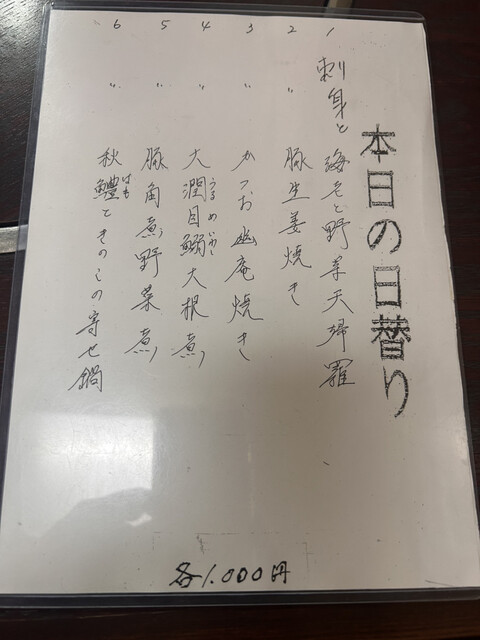 本日の日替り
1 刺身と海老と野菜天婦羅
2 〃 豚生姜焼き
3 〃 かつお幽庵焼き
4 〃 大潤目鰯大根煮
うるめいわし
5 〃 豚角煮、野菜煮
6 〃 秋鱧ときのこの寄せ鍋
はも
各1.000円